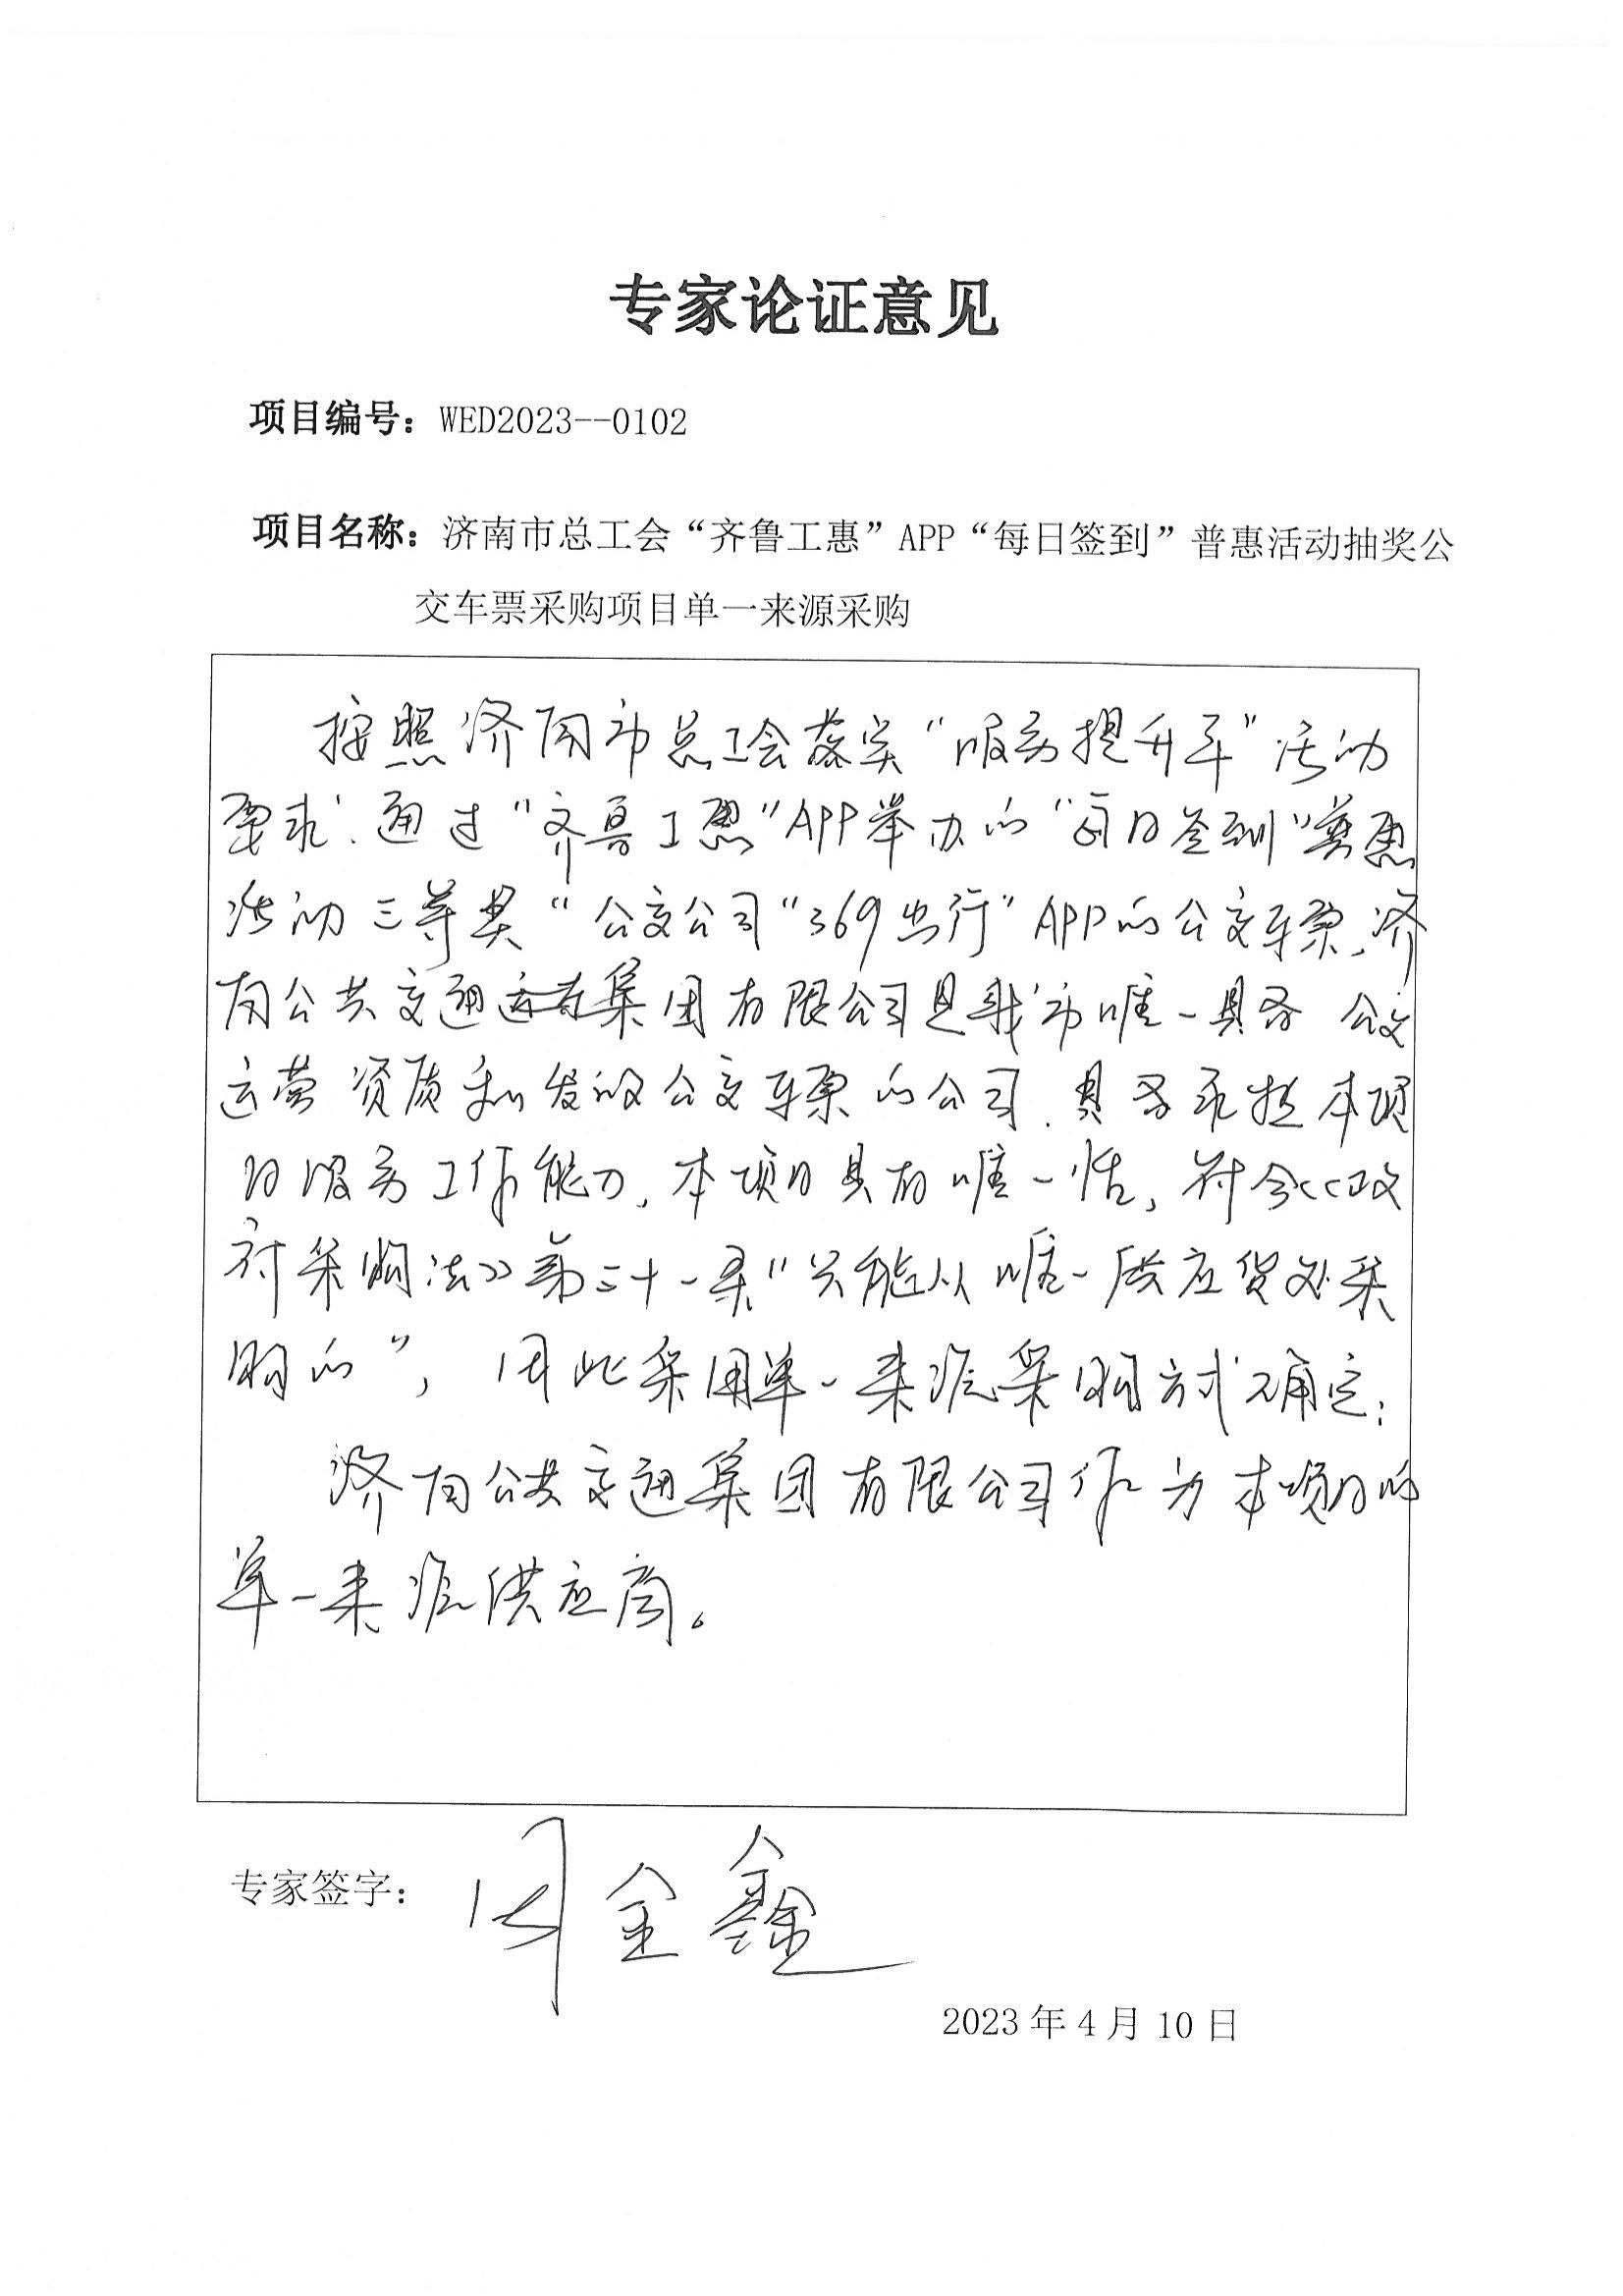 专家论证意见
项目编号：WED2023--0102
项目名称：济南市总工会“齐鲁工惠”APP“每日签到”普惠活动抽奖公
交车票采购项目单一来源采购
按照济南市总工会落实“服务提升年”活动
要求、通过“齐鲁工惠”APP举办的“每日签到”普惠
活动三等奖“公交公司“369出行”APP的公交车票、济
南公共交通集团有限公司是我市唯一具备公交
运营资质和发放公交车票的公司、具备承担本项
目服务工作能力，本项目具有唯一性，符合《政
府采购法》第三十一条“只能从唯一供应货处采
购的”，因此采用单一来源采购方式确定：
济南公共交通集团有限公司作为本项目的
单一来源供应商。
专家签字：周金鑫
2023年4月10日